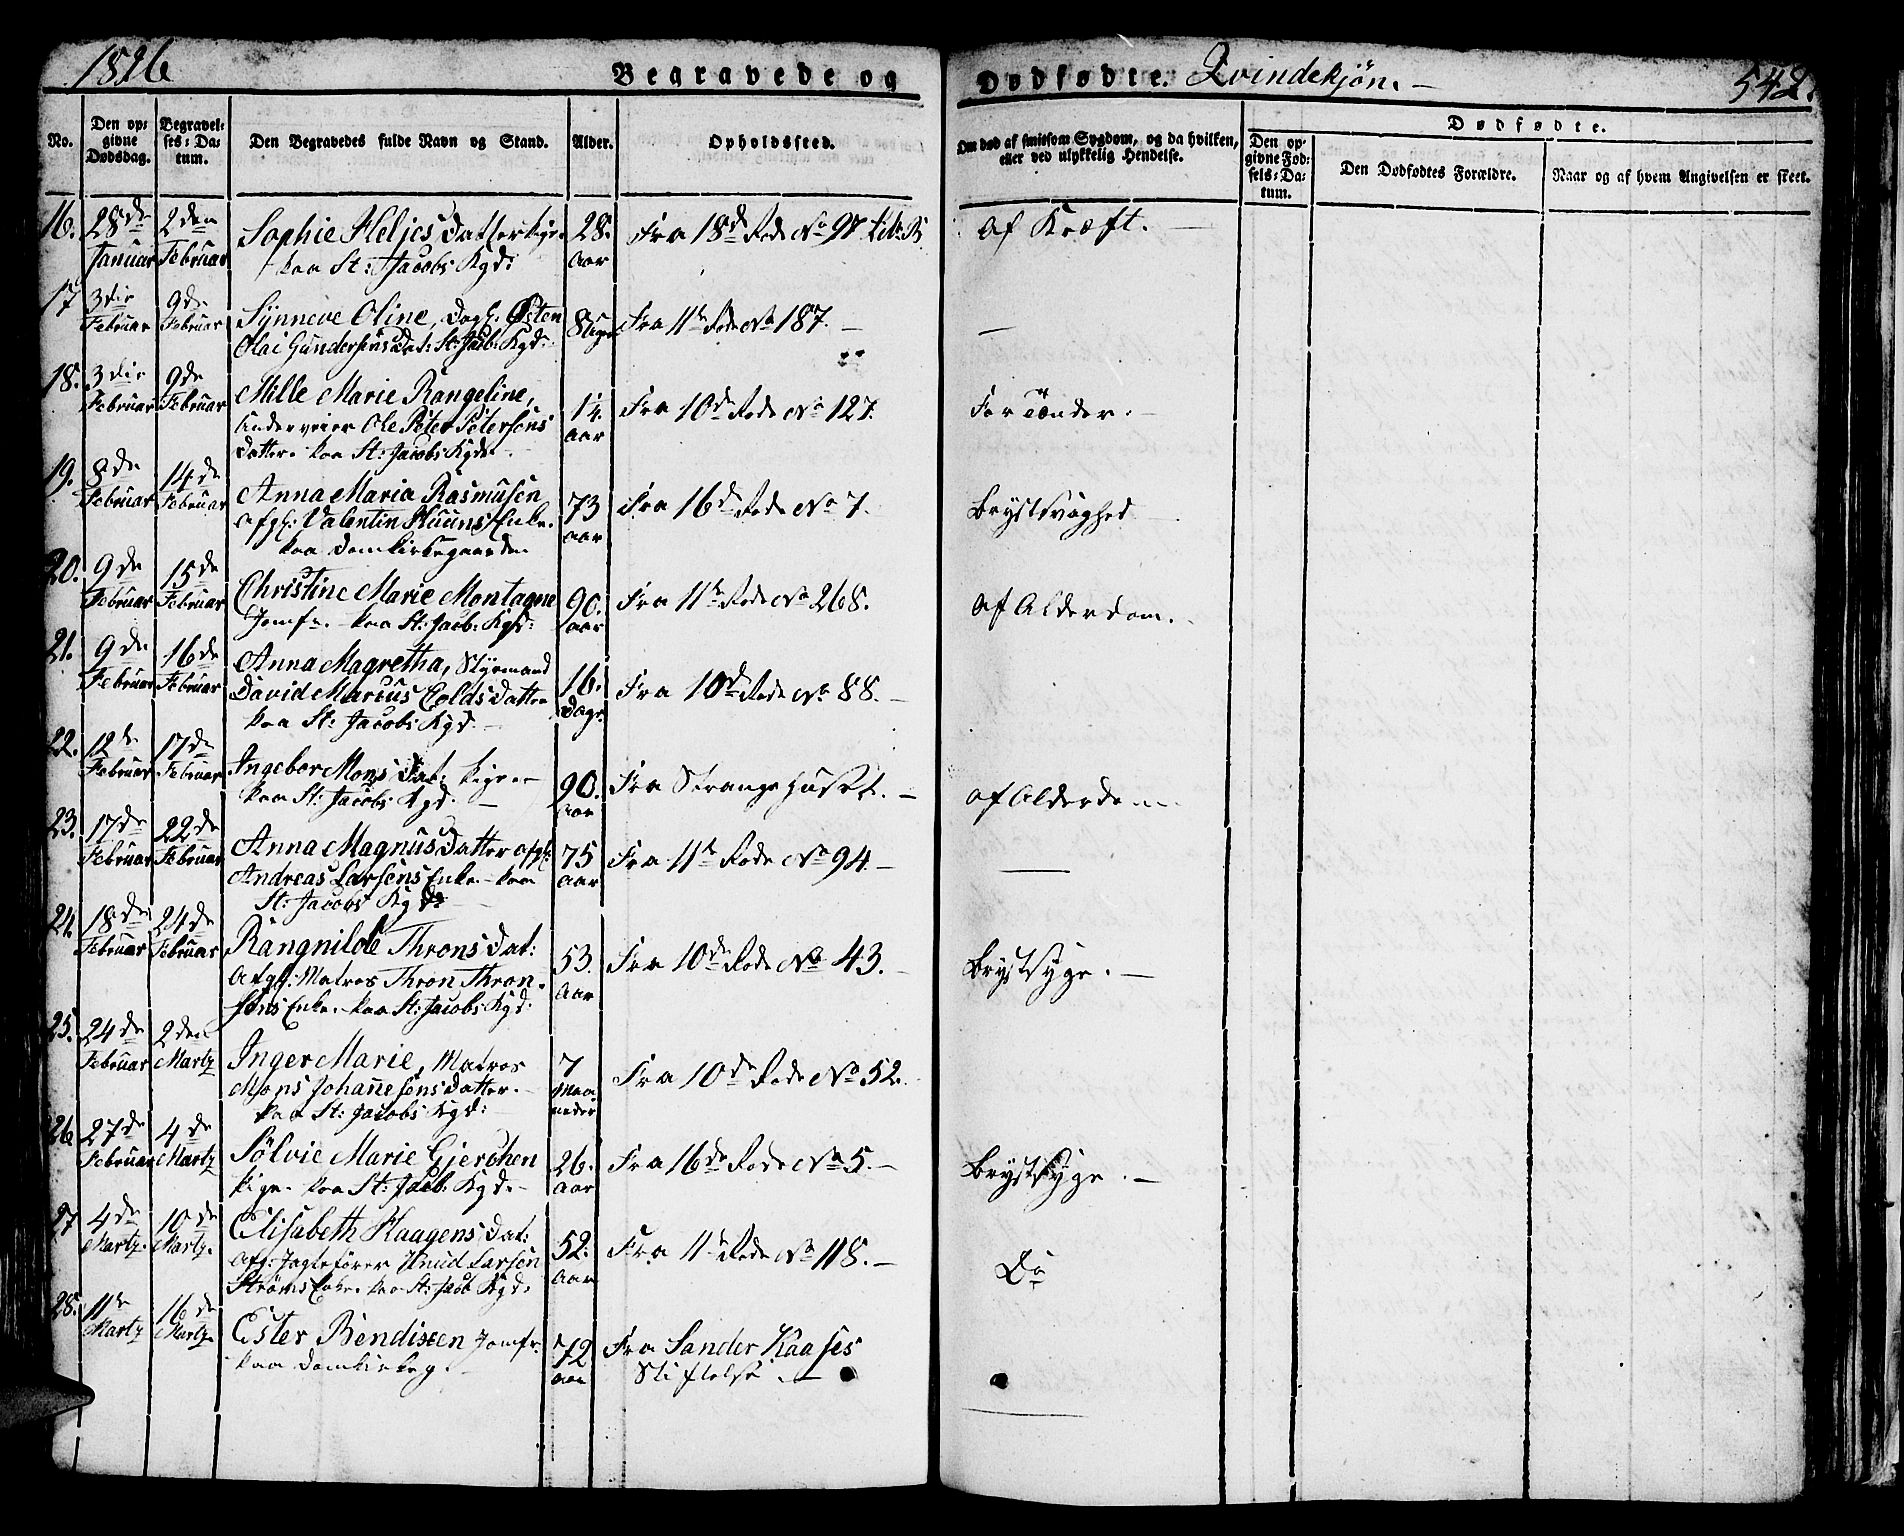 1826
Begravede og
Dødfødte. Qvindekjøn. —
542.
No.
Den opgivne Dødsdag.
Begravelses-Datum.
Den Begravedes fulde Navn og Stand.
Alder.
Opholdssted.
Om død af smitsom Sygdom, og da hvilken, eller ved ulykkelig Hendelse.
Dødfødte.
Den opgivne Fødsels-Datum.
Den Dødfødtes Forældre.
Naar og af hvem Angivelsen er skeet.
16. 28de Januar 2den Februar
Sophie Heljes Datter Pige
paa St: Jacobs Kgd:
28. Aar
Fra 18de Rode No 97
af Kræft. —
17 3die Februar 9de Februar
Synneve Oline, Dagl. Østen
Olai Gundersens Dat: St: Jacb: Kgd:
8 Uger
Fra 11te Rode No 187. —
—
18. 3die Februar 9de Februar
Mille Marie Rangeline,
Ole Peter Petersens
Datter. paa St: Jacobs Kgd.
1¼. Aar
Fra 10de Rode No 127.
For Tænder. —
19. 8de Februar 14de Februar
Anna Maria Rasmusen
afgl: Valentin Kuuns Enke.
paa Domkirkegaarden
73 Aar
Fra 16de Rode No 7.
Brystsvaghed
20. 9de Februar 15de Februar
Christine Marie Montagne
Jomfr. — paa St: Jacb: Kgd:
90. Aar
Fra 11te Rode No 268.
af Alderdom.
21. 9de Februar 16de Februar
Anna Magretha, Styrmand
David Marcus Colds Datter
paa St: Jacobs Kgd. —
16. Dage
Fra 10de Rode No 88. —
22. 12te Februar 17de Februar
Ingebor Mons Dat: Pige. —
paa St: Jacobs Kgd. —
90. Aar
Fra Strange Huset. —
af Alderdom
23. 17de Februar 22de Februar
Anna Magnus Datter afgl:
Andreas Larsens Enke — paa
St: Jacobs Kgd:
75 Aar
Fra 11te Rode No 94. —
—
24. 18de Februar 24de Februar
Rangnilde Throns Dat:
Afgl: Matros Thron Thron-
sens Enke. paa St: Jacobs Kgd:
53. Aar
Fra 10de Rode No 43. —
Brystsyge. —
25. 24de Februar 2den Martz
Inger Marie, Matros
Mons Johannesens Datter. —
paa St: Jacobs Kgd:
7 Maaneder
Fra 10de Rode No 52.
26 27de Februar 4de Martz
Sølvie Marie Gjerchen
Pige. paa St: Jacb: Kgd. —
26. Aar
Fra 16de Rode No 5. —
Brystsyge. —
27 4de Martz. 10de Martz.
Elisabeth Haagens Dat:
Afg: Jagtefører Knud Larsen
Strøms Enke. paa St: Jacb Kgd:
52. Aar
Fra 11te Rode No 118. —
Do
28. 11te Martz 16de Martz.
Ester Bendixen Jomfr.
paa Domkirkeg.
72 Aar
Fra Sander Kaases
Stiftelse. —